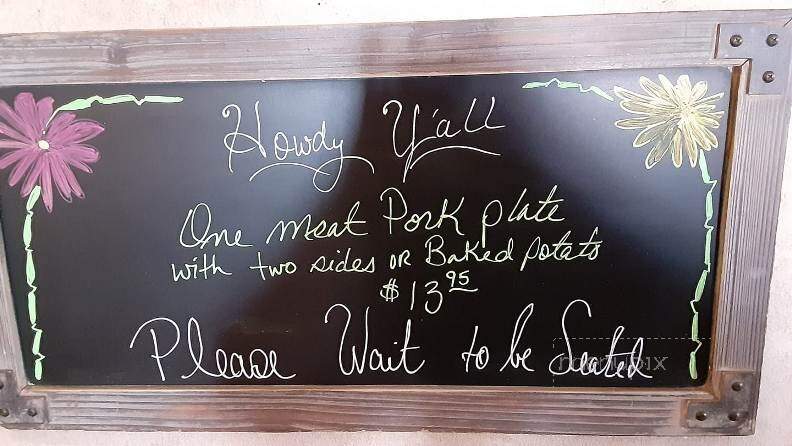 Howdy Y'all
One meat Pork plate
with two sides OR Baked potato
$13.95
Please Wait to be Seated
menupix